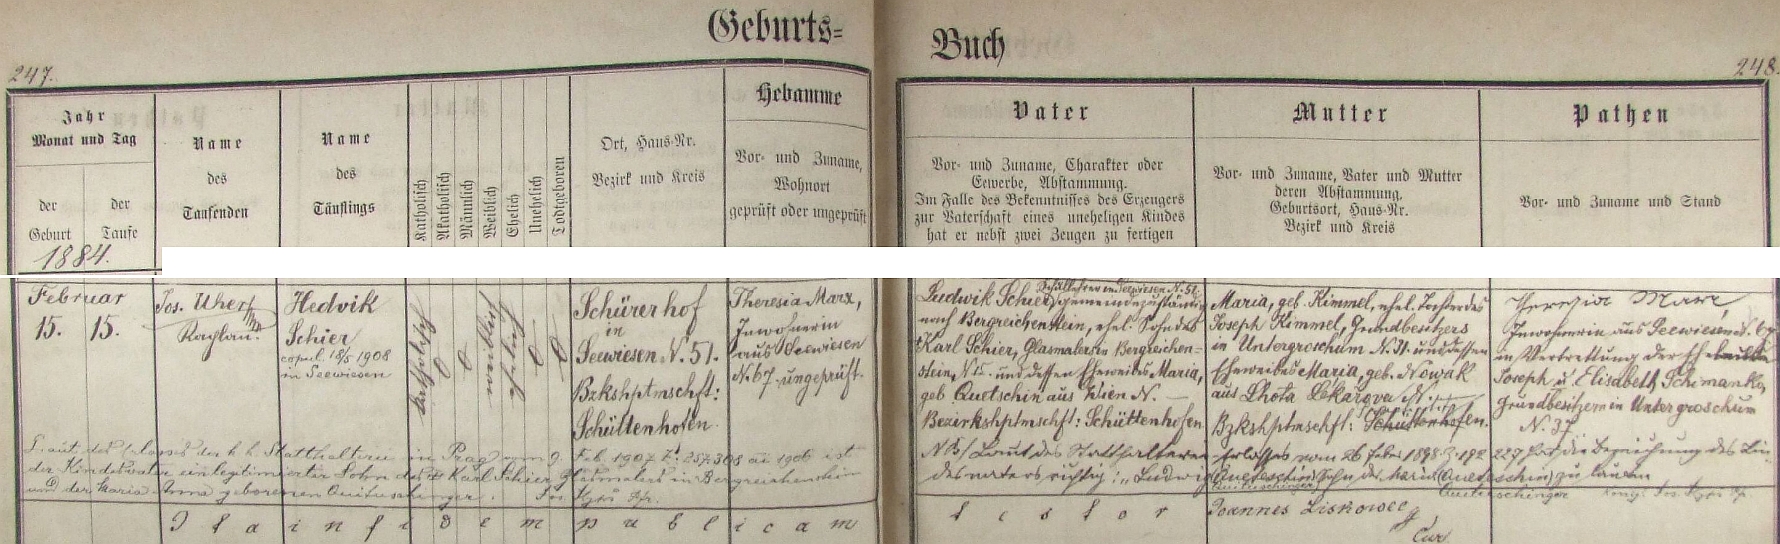 Geburts=
Buch
247.
248.
Jahr
Monat und Tag
der Geburt
der Taufe
Name des Taufenden
Name des Täuflings
Katholisch
Akatholisch
Männlich
Weiblich
Ehelich
Unehelich
Todtgeboren
Ort, Haus-Nr.
Bezirk und Kreis
Hebamme
Vor- und Zuname,
Wohnort
geprüft oder ungeprüft
Vater
Vor- und Zuname, Charakter oder
Gewerbe, Abstammung.
Im Falle des Bekenntnisses des Erzeugers
zur Vaterschaft eines uneheligen Kindes
hat er nebst zwei Zeugen zu fertigen
Mutter
Vor- und Zuname, Vater und Mutter
deren Abstammung,
Geburtsort, Haus-Nr.
Bezirk und Kreis
Pathen
Vor- und Zuname und Stand
1884.
Februar
15. 15.
Jos. Uher
Kaplan.
Hedvik
Schier
copul. 18/5 1908
in Seewiesen
katholisch
weiblich
ehelich
Schürerhof
in
Seewiesen N. 51.
Bzkshptmschft:
Schüttenhofen.
Theresia Marx,
Inwohnerin
aus Seewiesen
N. 67 ungeprüft.
Ludwik Schier, Schullehrer in Seewiesen N. 51. gemeindezuständig
nach Bergreichenstein, ehel. Sohn des
Karl Schier, Glasmaler in Bergreichen-
stein, N. und dessen Eheweibes Maria,
geb. Quetschin aus Wien N. —
Bezirkshptmschft: Schüttenhofen.
Maria, geb. Kimmel, ehel. Tochter des
Joseph Kimmel, Grundbesitzers
in Untergroschum N. 31. und dessen
Eheweibes Maria, geb. Nowak
aus Lhota Lekárova N.
Bzkshptmschft: Schüttenhofen.
Theresia Marx,
Inwohnerin aus Seewiesen N. 67
in Vertrettung der Eheleute
Joseph u. Elisabeth Schimanko,
Grundbesitzer in Untergroschum
N. 37
Laut des Erlasses der k. k. Statthalterei in Prag vom 9. Feb. 1907 Z: 257.308 ai 1906 ist
der Kindesvater ein legitimierter Sohn des Karl Schier, Glasmalers in Bergreichenstein
und der Maria Anna geborenen
NB/ Laut des Statthalterei Erlasses vom 26 Febr 1898 Z. 192 227 hat die Bezeichnung des Kin-
desvaters richtig: "Ludwig Sohn der Maria zu lauten
Ita in fidem publicam
testor Joannes Liskowec
Cur.